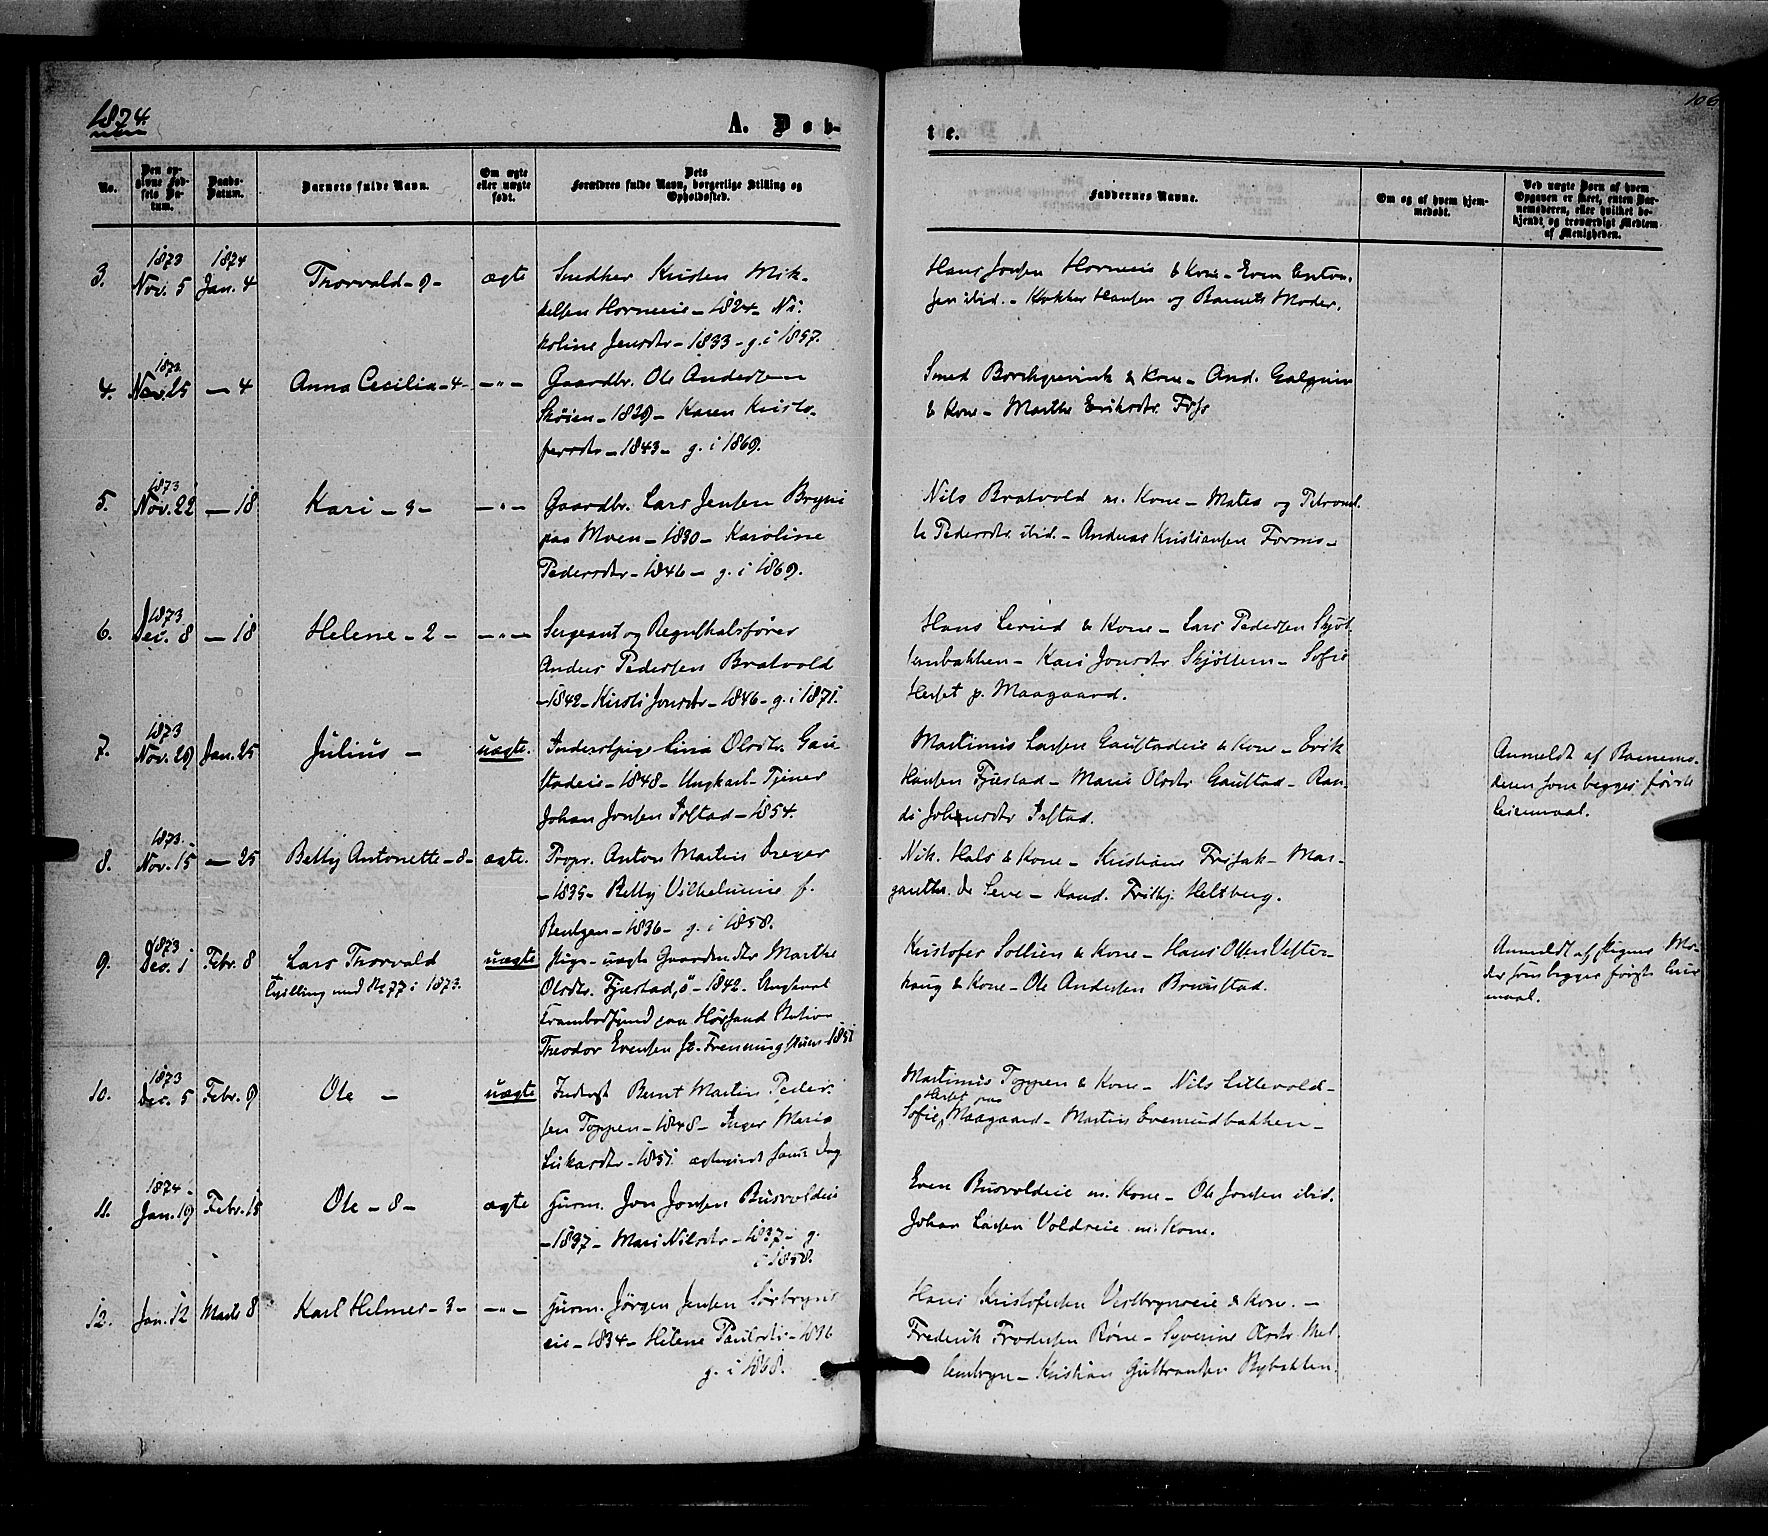 1874.
A. Døb-
te.
106
No.
Den op-
givne Fød-
sels Da-
tum.
Daabs-
Datum.
Barnets fulde Navn.
Om ægte
eller uægte
født.
Dets
Forældres fulde Navn, borgerlige Stilling og
Opholdssted.
Faddernes Navne.
Om og af hvem hjem-
medøbt.
Ved uægte Børn af hvem
Opgaven er skeet, enten Bar-
nemoderen, eller hvilket be-
kjendt og troværdigt Medlem
af Menigheden.
3.
1873
Nov. 5
1874
Jan. 4
Thorvald - 9 -
ægte
Snedker Kristen Mik-
kelsen Horneeie - 1824 - Ni-
koline Jensdtr - 1833 - g. i 1857.
Hans Jonsen Horneeie & Kone - Even Anton-
sen ibid. - Klokker Hansen og Barnets Moder.
4.
1873
Nov. 25
- 4
Anna Cecilia - 4 -
- " -
Gaardbr. Ole Andersen
Skøien - 1829 - Karen Kristo-
fersdtr - 1843 - g. i 1869.
Smed Borchgrevink & Kone - And.
& Kone - Marthe Eriksdtr. Foss
5.
1873
Nov. 22
- 18
Kari - 3 -
- " -
Gaardbr. Lars Jensen Bryni
paa Moen - 1830 - Karoline
Pedersdtr - 1846 - g. i 1869.
Nils Bratvold m. Kone - Mates og Petronel-
le Pedersdtr ibid. - Andreas Kristiansen Formo -
6.
1873
Dec. 8
- 18
Helene - 2 -
- " -
Sergeant og Regnskabsfører
Anders Pedersen Bratvold
- 1842 - Kirsti Jonsdtr - 1846 - g. i 1871.
Hans Lerud & Kone - Lars Pedersen Skjøt-
tenbakken - Kari Jonsdtr Skjøtten - Sofie
Herset p. Maagaard.
7.
1873
Nov. 29
Jan. 25
Julius -
uægte.
Inderstpige Lina Olsdtr. Gau-
stadeie - 1848 - Ungkarl - Tjener
Johan Jonsen Tofstad - 1854.
Martinus Larsen Gaustadeie & Kone - Erik
Hansen Fjæstad - Marie Olsdtr Gaustad - Ran-
di Johnsdtr
Anmeldt af Barnemo-
deren som begges første
Leiermaal.
8.
1873.
Nov. 15
- 25
Betty Antonette - 8 -
ægte.
Propr. Anton Martin Dreyer
- 1835 - Betty Vilhelmine f.
Rentgen - 1836 - g. i 1858.
Nik. Hals & Kone - Kristiane Frisak - Mar-
garethe de Seve - Kand. Frithj. Heltberg.
9.
1873
Dec. 1
Febr. 8
Lars Thorvald
Tvilling med No 77 i 1873.
uægte
Pige - uægte Gaardmdtr Marthe
Olsdtr. Fjæstad, ø - 1842 - Ungkarl
Krambodsvend paa Hørsand Station
Theodor Evensen fr. Frenning - 1851
Kristofer Sollien & Kone - Hans Olsen Vester-
haug & Kone - Ole Andersen Breustad.
Anmeldt af Pigens Mo-
der som begges første Leier-
maal.
10.
1873
Dec. 5
Febr. 9
Ole -
uægte
Inderst Bernt Martin Peder-
sen Toppen - 1848 - Inger Maria
1851 ægteviet samme Dag
Martinus Toppen & Kone - Nils Littevold -
Sofie Herset paa Maagaard - Martin Evenrudbakken -
11.
1874 -
Jan. 19
Febr. 15
Ole - 8 -
ægte
Husm. Jon Jonsen Busvoldeie
- 1837 - Mari Nilsdtr - 1837 - g.
i 1858.
Even Busvoldeie m. Kone - Ole Jonsen ibid.
Johan Larsen Voldeeie m. Kone.
12.
Jan. 12
Marts 8
Karl Helmer - 3 -
- " -
Husm. Jørgen Jensen Sørbryni-
eie - 1834 - Helene Paulsdtr - 1836
g. i 1868.
Hans Kristofersen Vestbrynieie & Kone. -
Frederik Frodesen Røne - Syverine Olsdtr. Mel-
lembryn - Kristian Gulbrandsen Rybakken.